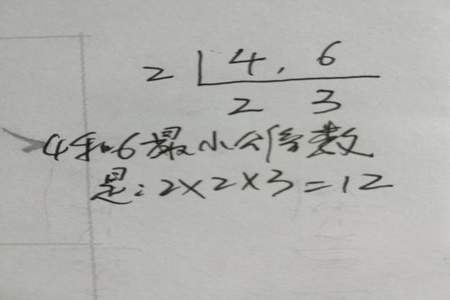 2 4, 6
2 3
4和6最小公倍数
是:2×2×3=12